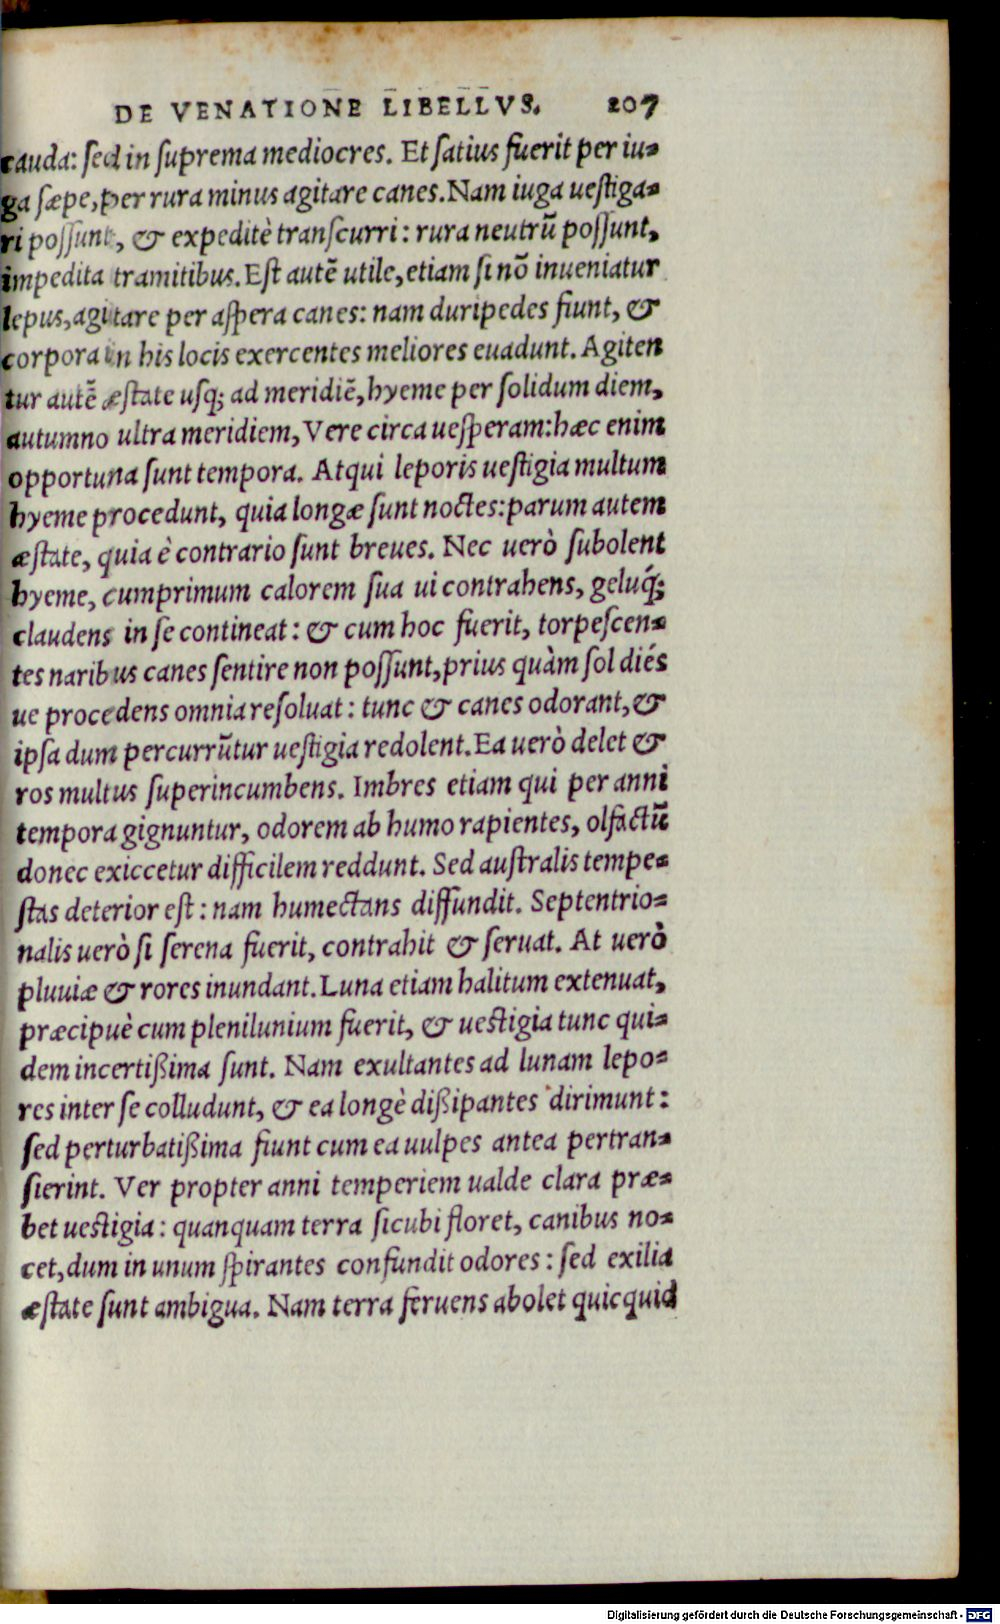 DE VENATIONE LIBELLVS. 207
cauda: sed in suprema mediocres. Et satius fuerit per iu-
ga sæpe, per rura minus agitare canes. Nam iuga uestiga-
ri possunt, & expeditè transcurri: rura neutrū possunt,
impedita tramitibus. Est autē utile, etiam si nō inueniatur
lepus, agitare per aspera canes: nam duripedes fiunt, &
corpora in his locis exercentes meliores euadunt. Agiten
tur autē æstate usq; ad meridiē, hyeme per solidum diem,
autumno ultra meridiem, Vere circa uesperam: hæc enim
opportuna sunt tempora. Atqui leporis uestigia multum
hyeme procedunt, quia longæ sunt noctes: parum autem
æstate, quia è contrario sunt breues. Nec uerò subolent
hyeme, cumprimum calorem sua ui contrahens, geluq́;
claudens in se contineat: & cum hoc fuerit, torpescen-
tes naribus canes sentire non possunt, prius quàm sol diés
ue procedens omnia resoluat: tunc & canes odorant, &
ipsa dum percurrūtur uestigia redolent. Ea uerò delet &
ros multus superincumbens. Imbres etiam qui per anni
tempora gignuntur, odorem ab humo rapientes, olfactū
donec exiccetur difficilem reddunt. Sed australis tempe-
stas deterior est: nam humectans diffundit. Septentrio-
nalis uerò si serena fuerit, contrahit & seruat. At uerò
pluuiæ & rores inundant. Luna etiam halitum extenuat,
præcipuè cum plenilunium fuerit, & uestigia tunc qui-
dem incertißima sunt. Nam exultantes ad lunam lepo-
res inter se colludunt, & ea longè dißipantes dirimunt:
sed perturbatißima fiunt cum ea uulpes antea pertran-
sierint. Ver propter anni temperiem ualde clara præ-
bet uestigia: quanquam terra sicubi floret, canibus no-
cet, dum in unum spirantes confundit odores: sed exilia
æstate sunt ambigua. Nam terra feruens abolet quicquid
Digitalisierung gefördert durch die Deutsche Forschungsgemeinschaft - DFG